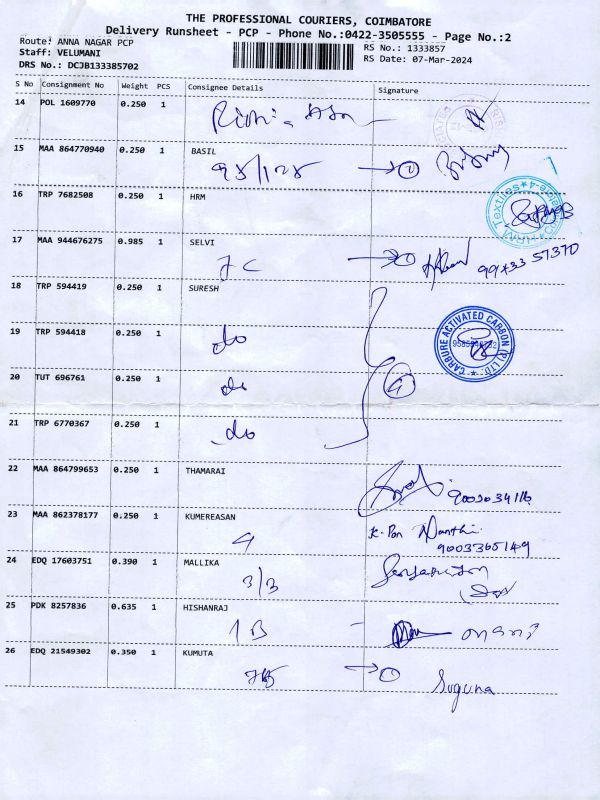 THE PROFESSIONAL COURIERS, COIMBATORE
Delivery Runsheet - PCP - Phone No.:0422-3505555 - Page No.:2
Route: ANNA NAGAR PCP
Staff: VELUMANI
DRS No.: DCJB133385702
RS No.: 1333857
RS Date: 07-Mar-2024
S No Consignment No Weight PCS Consignee Details Signature
14 POL 1609770 0.250 1
15 MAA 864770940 0.250 1 BASIL
95/125
16 TRP 7682508 0.250 1 HRM
Textiles
17 MAA 944676275 0.985 1 SELVI
7C
18 TRP 594419 0.250 1 SURESH
CARBURE ACTIVATED CARBON (P) LTD
19 TRP 594418 0.250 1
do
20 TUT 696761 0.250 1
do
4
21 TRP 6770367 0.250 1
do
22 MAA 864799653 0.250 1 THAMARAI
23 MAA 862378177 0.250 1 KUMEREASAN
9
K. Pon Nanthi
9003365149
24 EDQ 17603751 0.390 1 MALLIKA
3/3
25 PDK 8257836 0.635 1 HISHANRAJ
1B
26 EDQ 21549302 0.350 1 KUMUTA
7B
Suguna